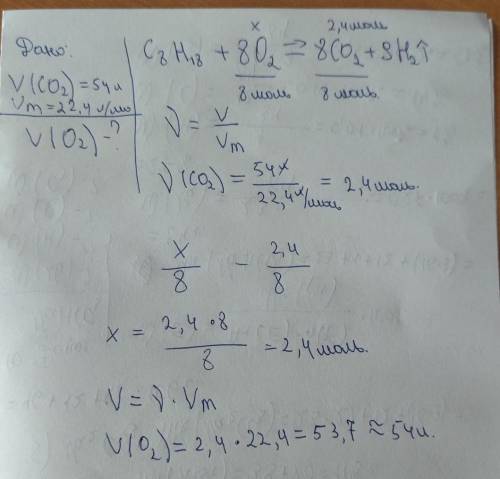 Дано:
V(CO₂)=54л
Vm=22,4л/моль
V(O₂)-?
x 2,4моль
C₈H₁₈ + 8O₂ ⇒ 8CO₂ + 9H₂↑
8моль 8моль
ν = V/Vm
ν(CO₂) = 54л/22,4л/моль = 2,4моль.
x/8 – 2,4/8
x = 2,4·8/8 = 2,4моль.
V = ν · Vm
V(O₂) = 2,4·22,4 = 53,7 ≈ 54л.